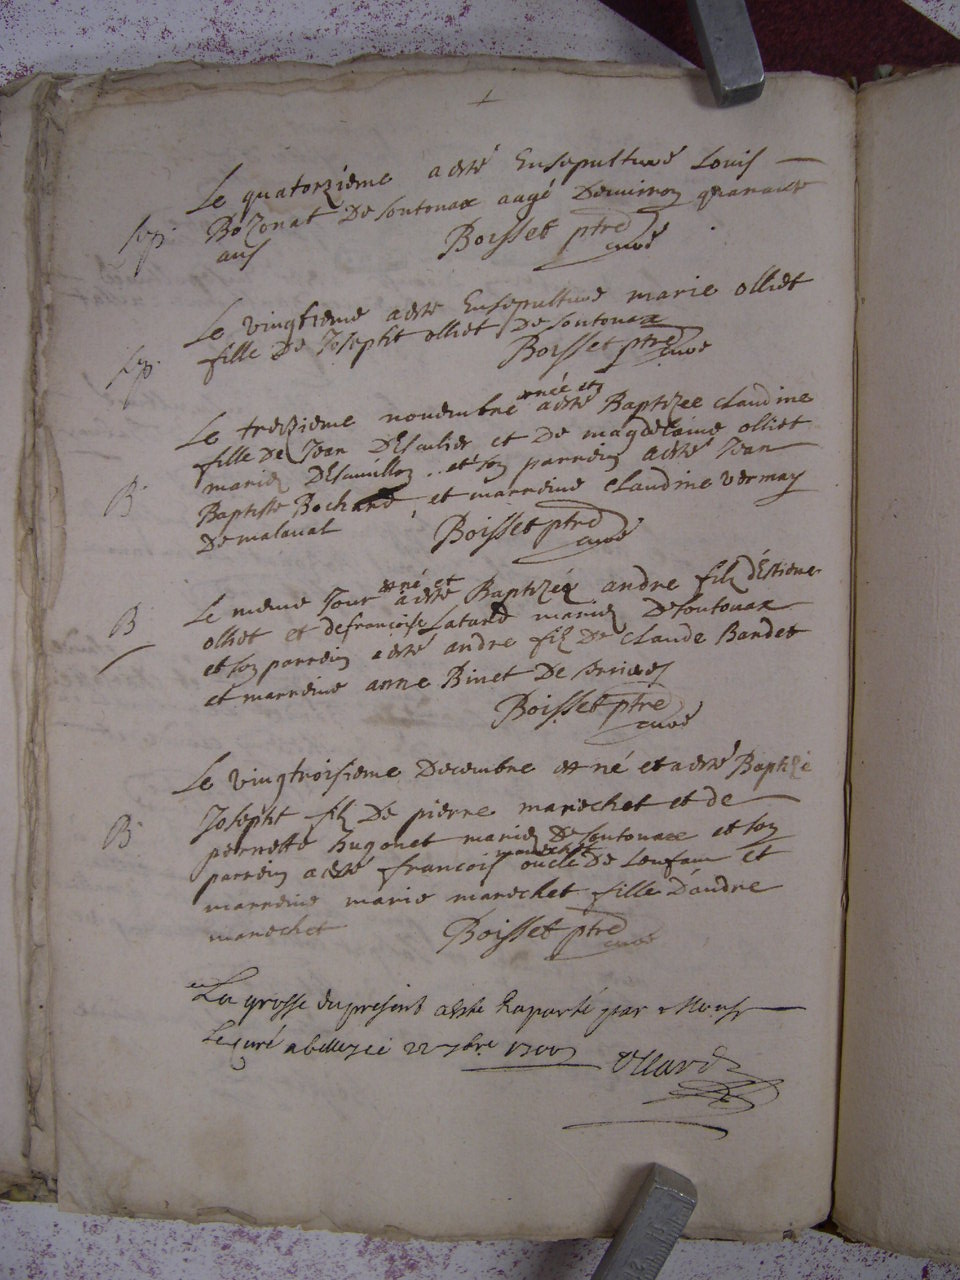 Le quatorzième a esté Ensepulturé Louis
sep. Bozonat De soutonax aagé Denviron quarante
ans Boisset ptre
curé
Le vingtieme a esté Ensepulturé marie olliet
sep. fille De Josepht olliet De soutonax
Boisset ptre
curé
Le treizieme novembre est née et a esté Baptizee claudine
fille De Jean et De magdelaine olliet
mariez et son parrein a esté Jean
B. Baptiste Bochard et marreine claudine vermay
De malaval Boisset ptre
curé
B Le meme Jour est né et a esté Baptizéz andre filz d'Estiene
olliet et de francoise Latard mariez De soutonax
et son parrein a esté andre filz De claude Bandet
et marreine anne Binet De
Boisset ptre
curé
Le vingtroisieme Decembre est né et a esté Baptizé
Josepht filz De pierre marechet et de
B. pernette hugonet mariez De soutonax et son
parrein a esté francois marechet oncle De et
marreine marie marechet fille D'andre
marechet Boisset ptre
curé
La grosse du present a esté Raporté par Monsr
Le curé a 22 1700